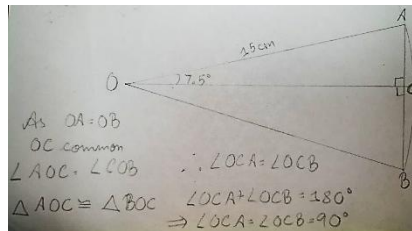 A
15cm
O
7.5°
C
B
As OA = OB
OC common
∠AOC = ∠COB
∴ ∠OCA = ∠OCB
△AOC ≅ △BOC
∠OCA + ∠OCB = 180°
⇒ ∠OCA = ∠OCB = 90°